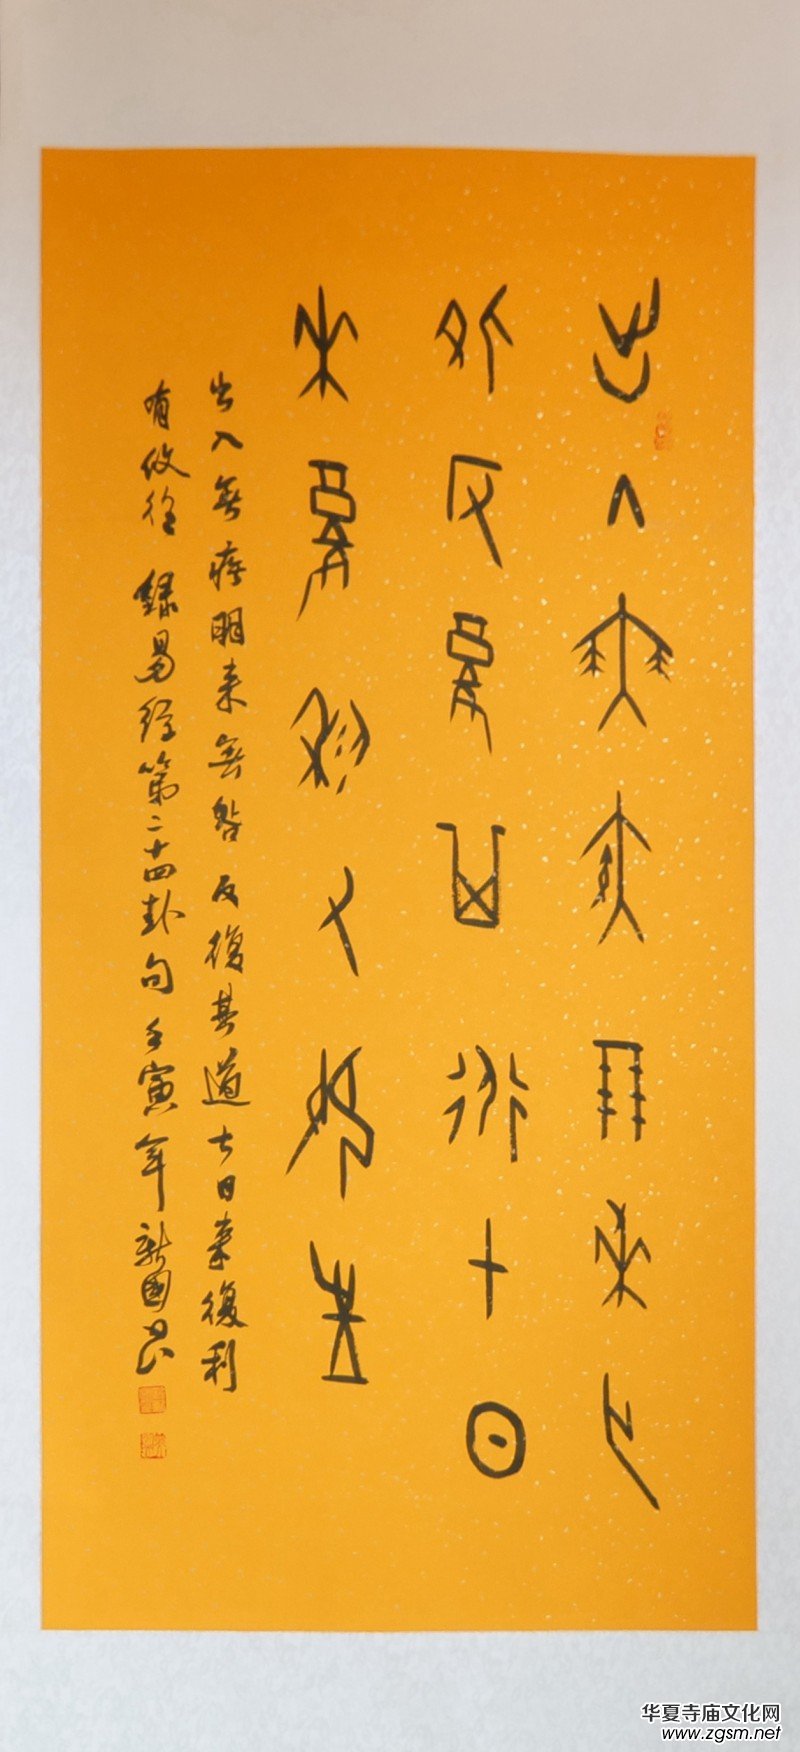 出入無疾朋來亡
咎反復其道七日
來復利又攸往
出入無疾朋来無咎反復其道七日来復利
有攸往 錄易經第二十四卦句 壬寅年
华夏寺庙文化网
www.zgsm.net